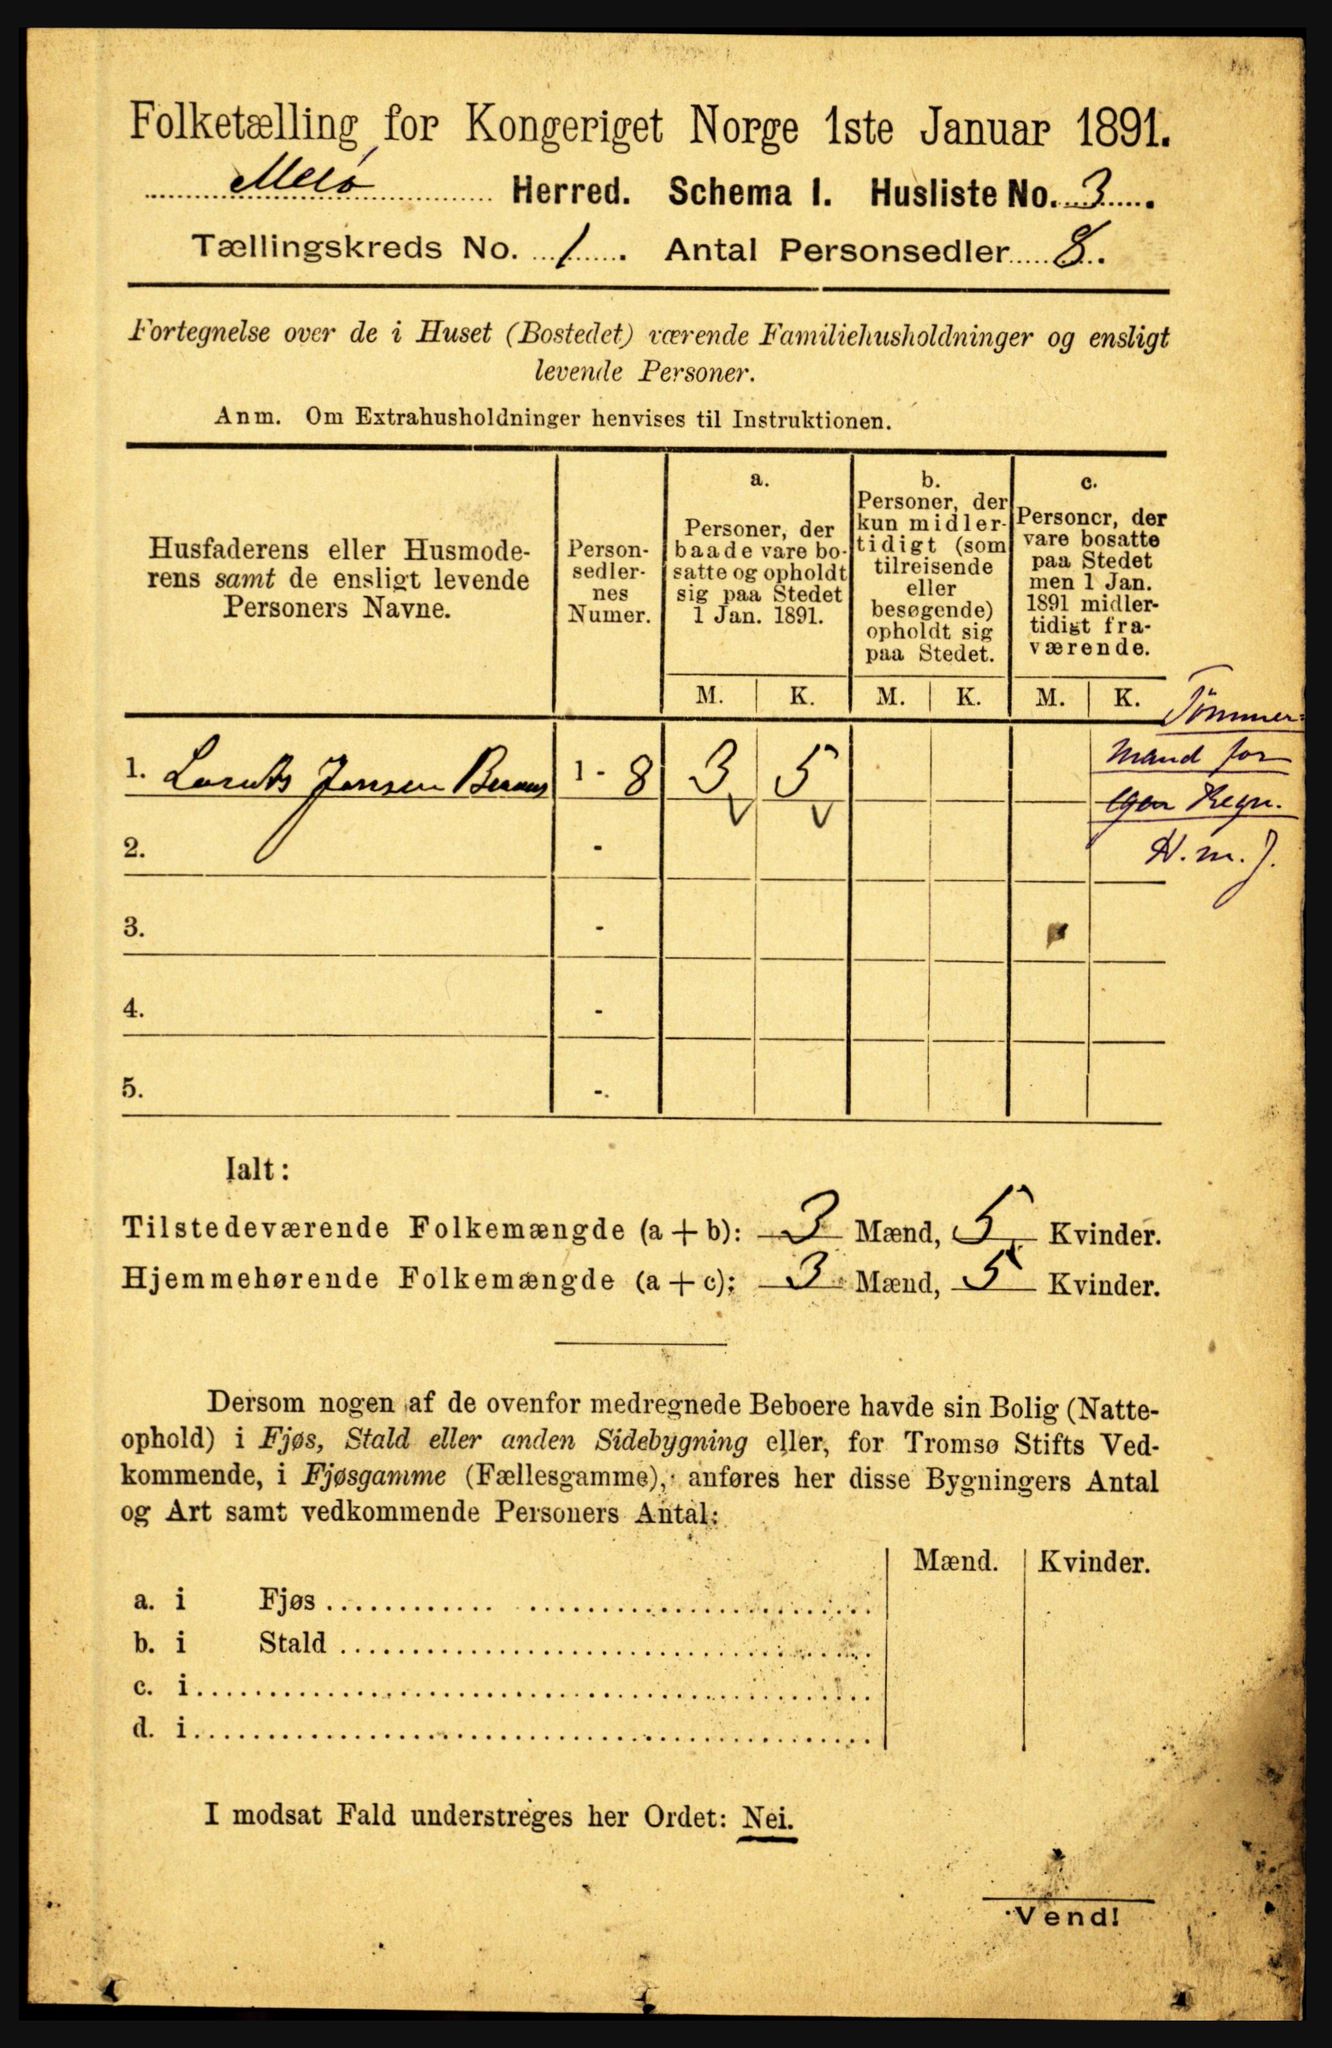 Folketælling for Kongeriget Norge 1ste Januar 1891.
Melö Herred. Schema I. Husliste No. 3.
Tællingskreds No. 1. Antal Personsedler 8.
Fortegnelse over de i Huset (Bostedet) værende Familiehusholdninger og ensligt
levende Personer.
Anm. Om Extrahusholdninger henvises til Instruktionen.
Husfaderens eller Husmode-
rens samt de ensligt levende
Personers Navne.
Person-
sedler-
nes
Numer.
a.
Personer, der
baade vare bo-
satte og opholdt
sig paa Stedet
1 Jan. 1891.
b.
Personer, der
kun midler-
tidigt (som
tilreisende
eller
besøgende)
opholdt sig
paa Stedet.
c.
Personer, der
vare bosatte
paa Stedet
men 1 Jan.
1891 midler-
tidigt fra-
værende.
M. K. M. K. M. K.
Tömmer-
mand for
egen Regn.
H. m. J.
1. Jensen 1 - 8 3 5
2. -
3. -
4. -
5. -
Ialt:
Tilstedeværende Folkemængde (a + b): 3 Mænd, 5 Kvinder.
Hjemmehørende Folkemængde (a + c): 3 Mænd, 5 Kvinder.
Dersom nogen af de ovenfor medregnede Beboere havde sin Bolig (Natte-
ophold) i Fjøs, Stald eller anden Sidebygning eller, for Tromsø Stifts Ved-
kommende, i Fjøsgamme (Fællesgamme), anføres her disse Bygningers Antal
og Art samt vedkommende Personers Antal:
Mænd. Kvinder.
a. i Fjøs
b. i Stald
c. i
d. i
I modsat Fald understreges her Ordet: Nei.
Vend!